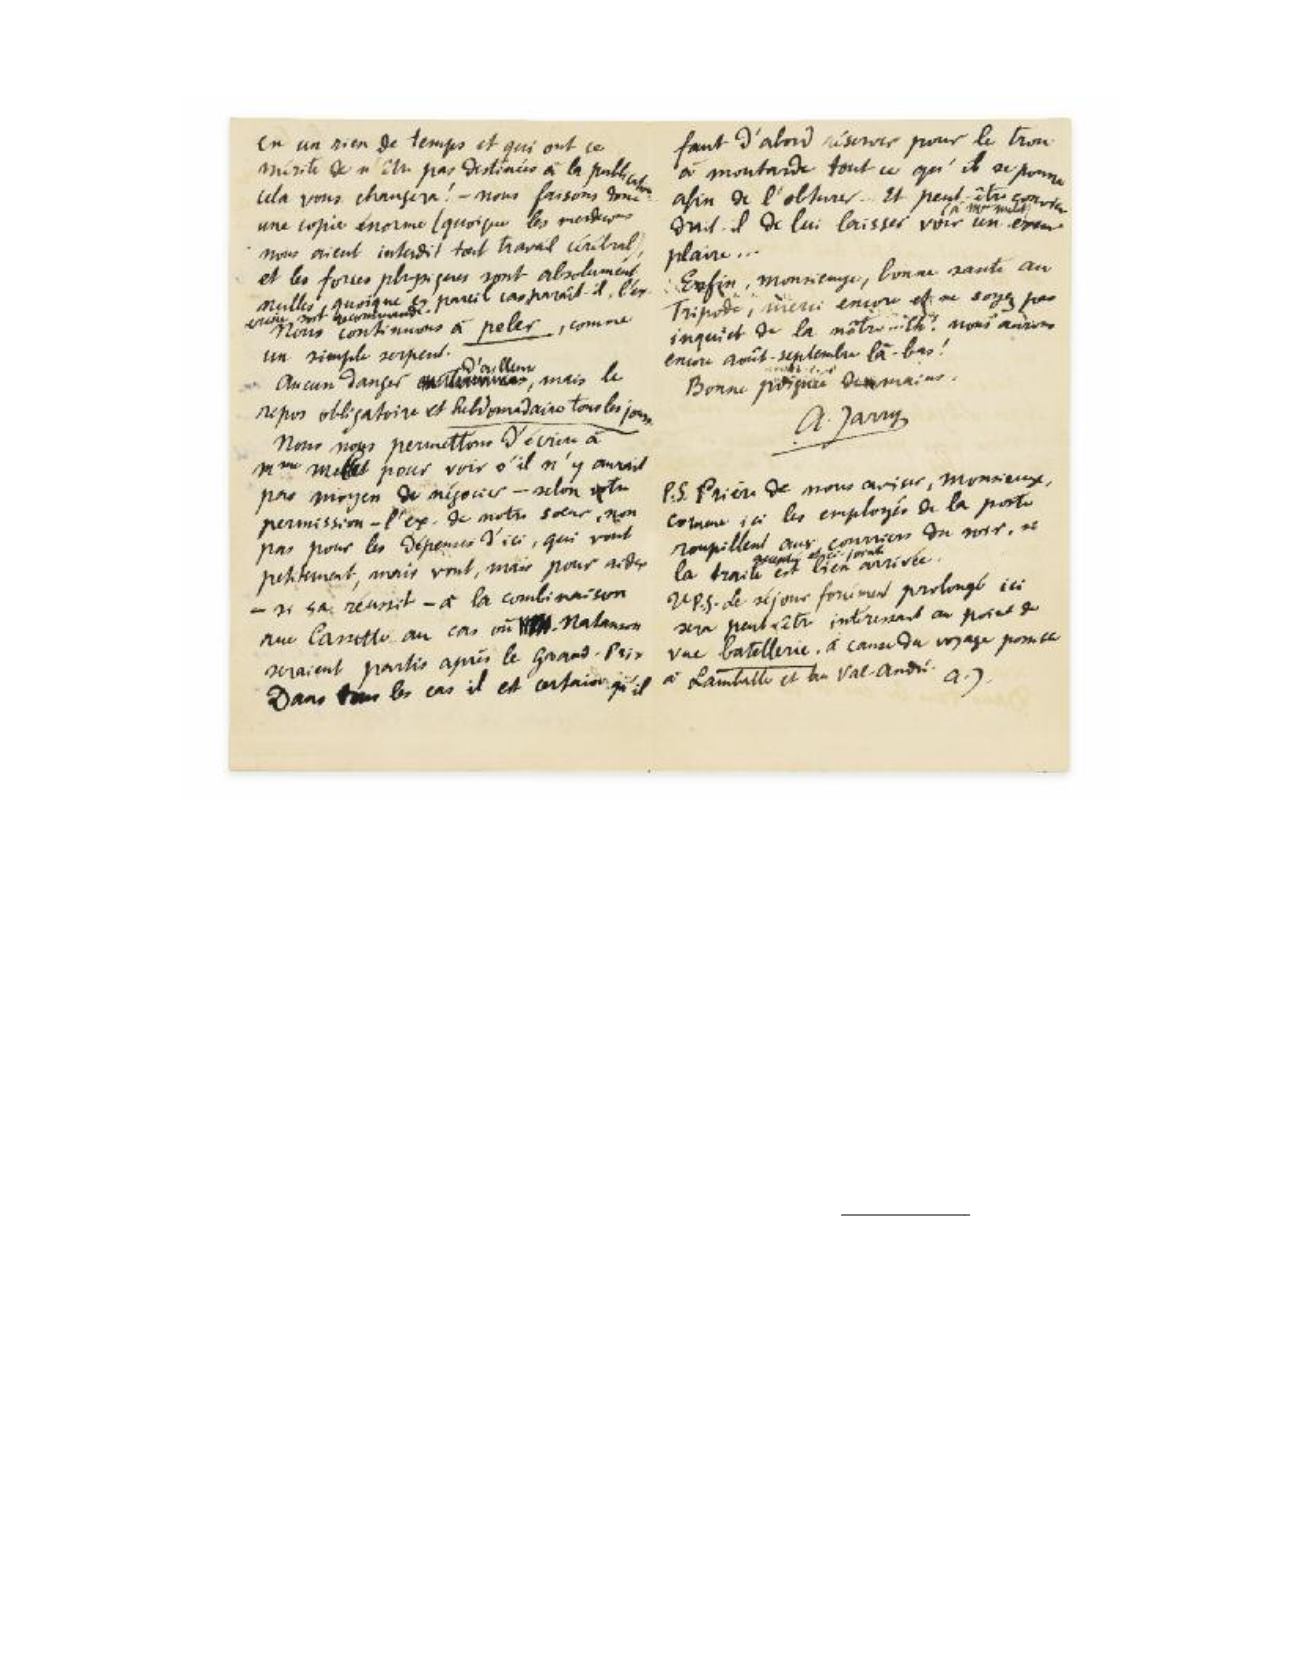 en un rien de temps et qui ont ce
mérite de n'être pas destinées à la publication
cela vous changera! – nous faisons donc
une copie énorme (quoique les merdecins
nous aient interdit tout travail cérébral,
et les forces physiques sont absolument
nulles, quoique en pareil cas, paraît-il, l'ex-
ercice soit recommandé.
Nous continuons à peler, comme
un simple serpent.
d'ailleurs
Aucun danger, mais le
repos obligatoire et hebdomadaire tous les jours
Nous nous permettons d'écrire à
Mme pour voir s'il n'y aurait
pas moyen de négocier – selon
permission – l'ex. de notre soeur, non
pas pour les dépenses d'ici, qui vont
petitement, mais vont, mais pour aider
– si ça réussit – à la combinaison
rue Cassette au cas où Natanson
seraient partis après le Grand-Prix
Dans tous les cas il est certain qu'il
faut d'abord réserver pour le trou
à moutarde tout ce qu'il se pourra
afin de l'obturer... Et peut-être convien
(à Mme
drait-il de lui laisser voir un exem-
plaire...
Enfin, monsieuye, bonne santé au
Tripode, merci encore et ne soyez pas
inquiet de la nôtre nous aurons
encore août-septembre là-bas!
Bonne poignée de mains.
A. Jarry
P.S. Prière de nous aviser, monsieuye,
comme ici les employés de la poste
roupillent aux courriers du soir, si
et ci-jointe
la traite est bien arrivée.
2e P.S. Le séjour forcément prolongé ici
sera peut-être intéressant au point de
vue batellerie, à cause du voyage
à Lamballe et au Val-André. A. J.